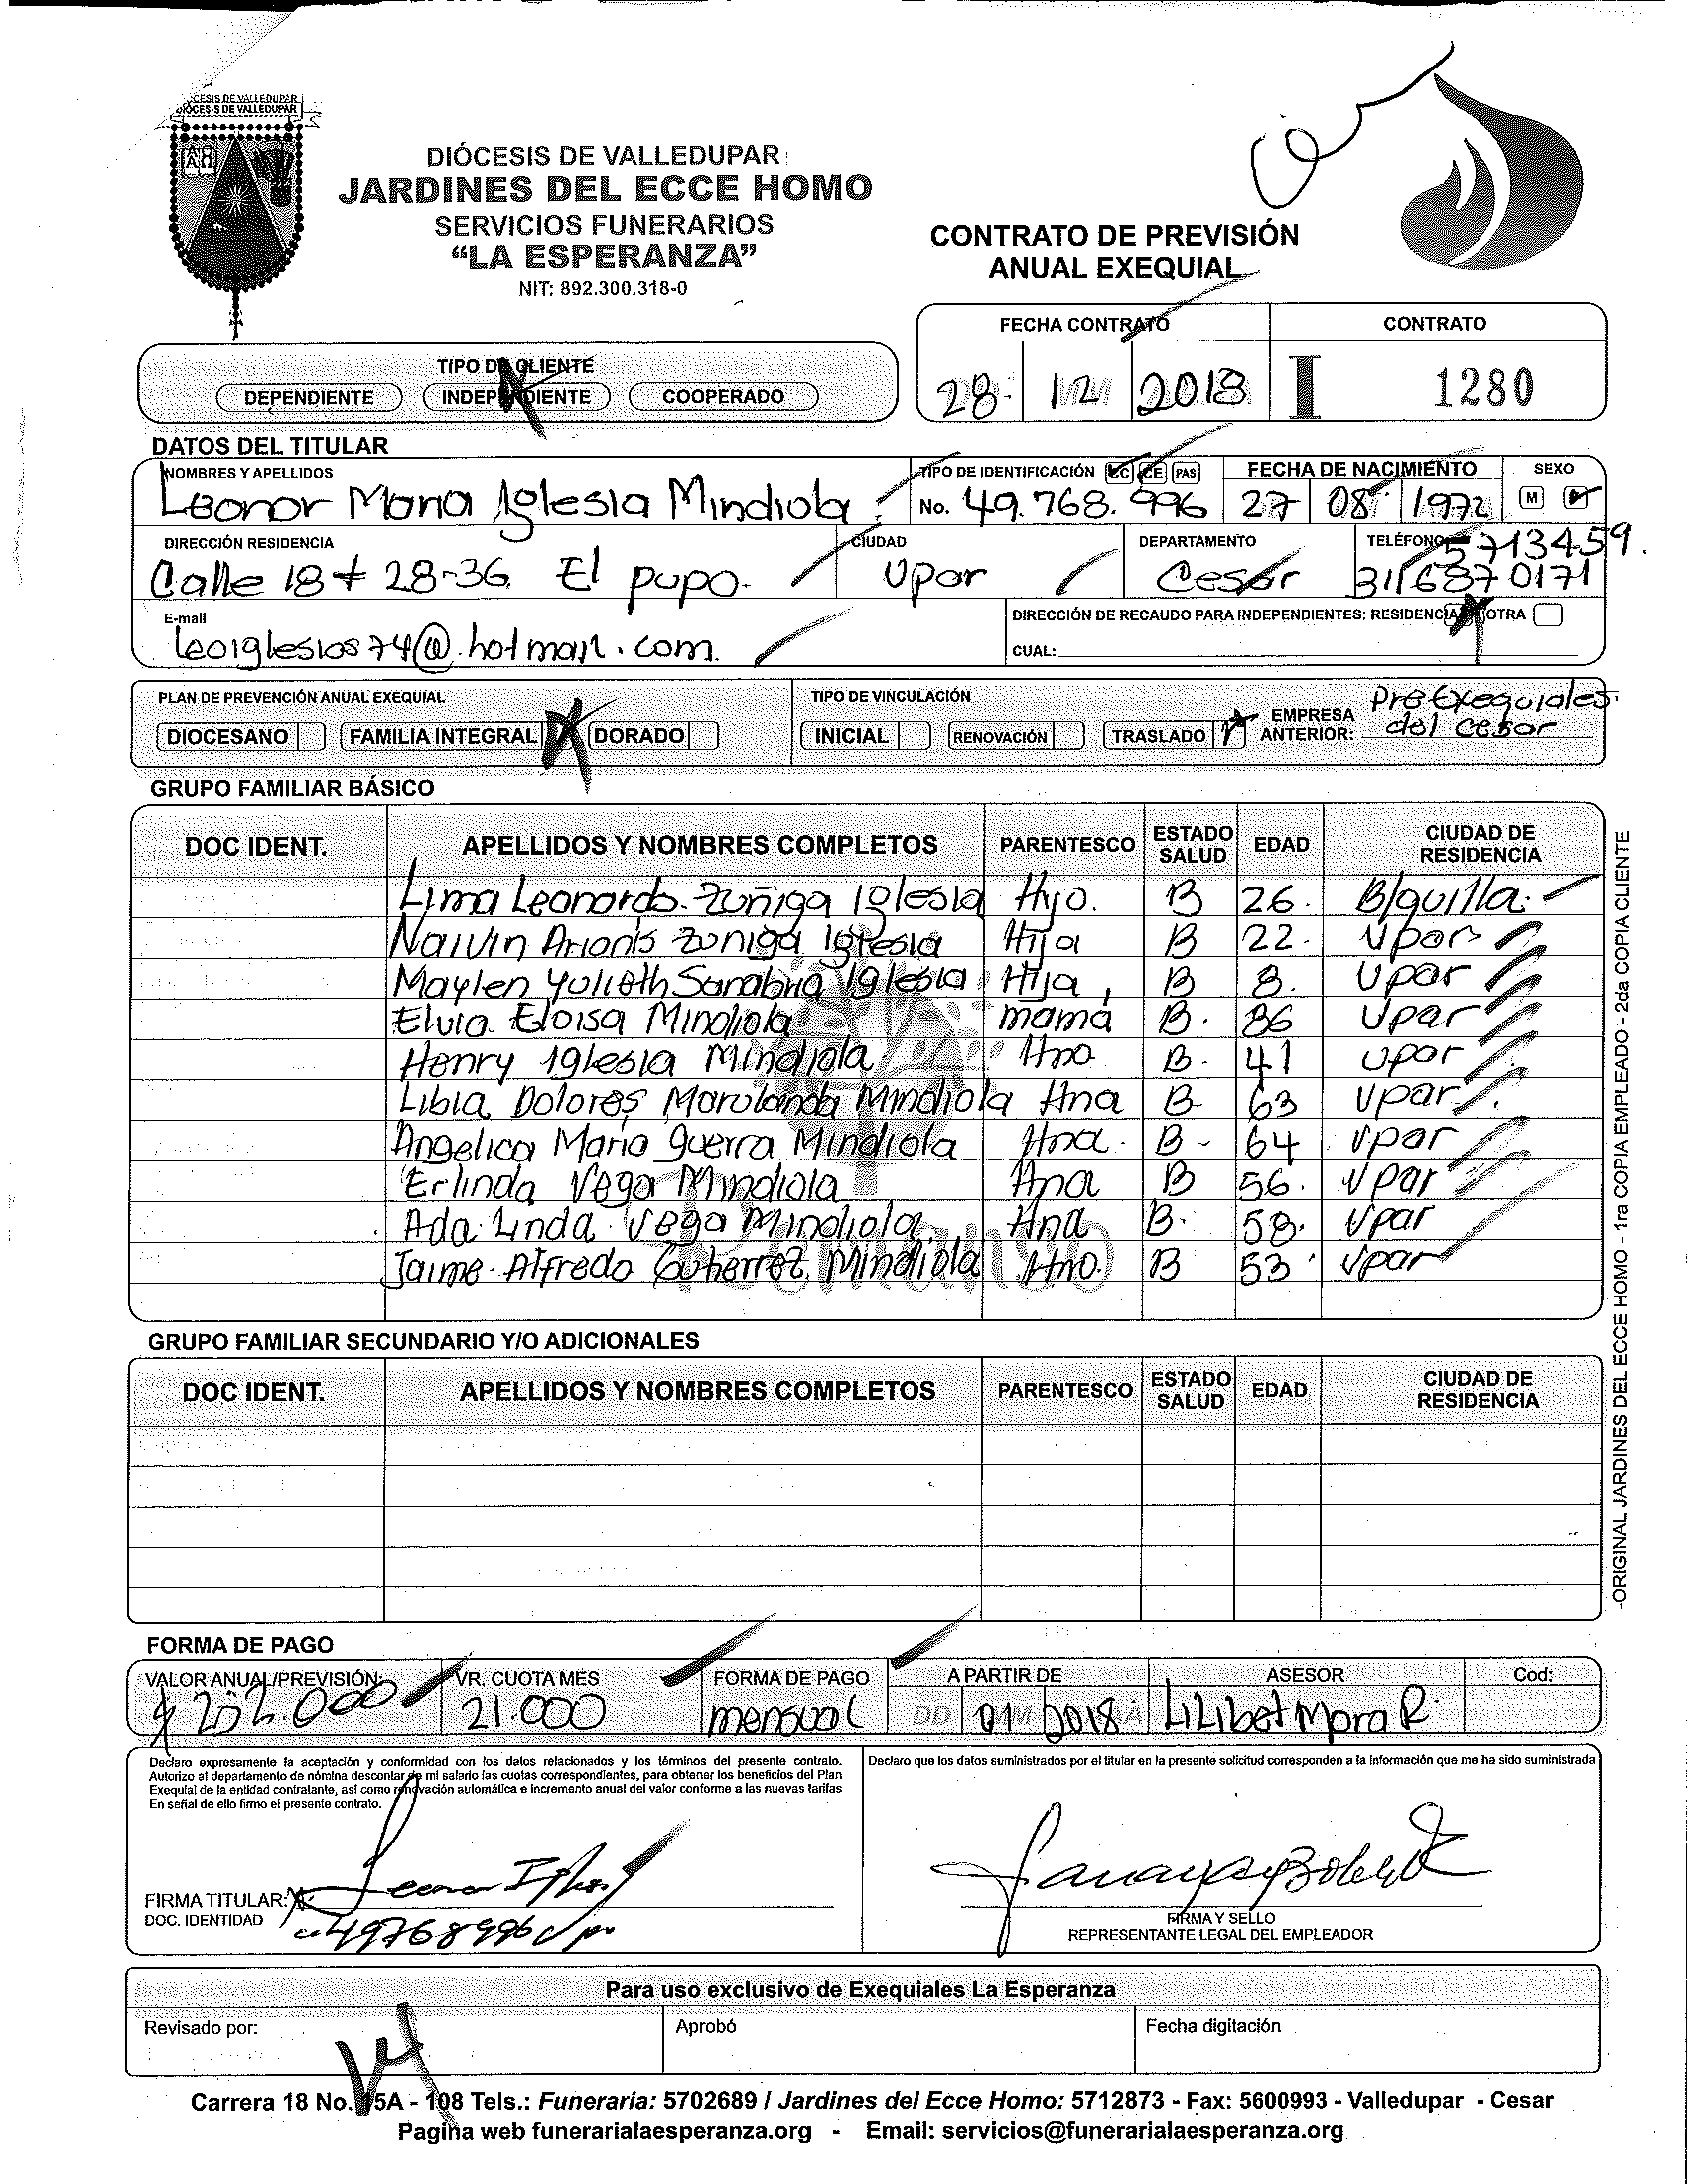 DIÓCESIS DE VALLEDUPAR
DIÓCESIS DE VALLEDUPAR
JARDINES DEL ECCE HOMO
SERVICIOS FUNERARIOS
“LA ESPERANZA”
NIT: 892.300.318-0
CONTRATO DE PREVISIÓN
ANUAL EXEQUIAL
FECHA CONTRATO CONTRATO
28 12 2018 I 1280
TIPO DE CLIENTE
DEPENDIENTE INDEPENDIENTE COOPERADO
DATOS DEL TITULAR
NOMBRES Y APELLIDOS TIPO DE IDENTIFICACIÓN CC CE PAS FECHA DE NACIMIENTO SEXO
Leonor Maria Iglesia Mindiola No. 49.768.996 27 08 1972 M
DIRECCIÓN RESIDENCIA CIUDAD DEPARTAMENTO TELÉFONO 5713459.
Calle 18 # 28-36 El pupo. Upar Cesar 3116870171
E-mail DIRECCIÓN DE RECAUDO PARA INDEPENDIENTES: RESIDENCIA OTRA
leoiglesias74@hotmail.com. CUAL:
PLAN DE PREVENCIÓN ANUAL EXEQUIAL TIPO DE VINCULACIÓN
DIOCESANO FAMILIA INTEGRAL DORADO INICIAL RENOVACIÓN TRASLADO EMPRESA ANTERIOR: PreExequiales del cesar
GRUPO FAMILIAR BÁSICO
DOC IDENT. APELLIDOS Y NOMBRES COMPLETOS PARENTESCO ESTADO SALUD EDAD CIUDAD DE RESIDENCIA
Lima Leonardo Zuñiga Iglesia Hijo. B 26. B/quilla.
Naivin Arianis Zuniga Iglesia Hija B 22. Upar
Maylen Yulieth Sanabria Iglesia Hija B 8. Upar
Elvia Eloisa Mindiola mamá B. 86 Upar
Henry Iglesia Mindiola Hno B. 41 upar
Libia Dolores Marulanda Mindiola Hna B 63 Vpar
Angelica Maria guerra Mindiola Hna. B - 64 Vpar
Erlinda Vega Mindiola Hna B 56. Vpar
Ada Linda Vega Mindiola Hna B. 58. Vpar
Jaime Alfredo Gutierrez Mindiola Hno. B 53 Vpar
GRUPO FAMILIAR SECUNDARIO Y/O ADICIONALES
DOC IDENT. APELLIDOS Y NOMBRES COMPLETOS PARENTESCO ESTADO SALUD EDAD CIUDAD DE RESIDENCIA
-ORIGINAL JARDINES DEL ECCE HOMO - 1ra COPIA EMPLEADO - 2da COPIA CLIENTE
FORMA DE PAGO
VALOR ANUAL/PREVISIÓN: VR. CUOTA MES FORMA DE PAGO A PARTIR DE ASESOR Cod:
$ 252.000 21.000 mensual DD 01 2018 Lilibet Mora R.
Declaro expresamente la aceptación y conformidad con los datos relacionados y los términos del presente contrato.
Autorizo al departamento de nómina descontar de mi salario las cuotas correspondientes, para obtener los beneficios del Plan
Exequial de la entidad contratante, así como renovación automática e incremento anual del valor conforme a las nuevas tarifas
En señal de ello firmo el presente contrato.
Declaro que los datos suministrados por el titular en la presente solicitud corresponden a la información que me ha sido suministrada
FIRMA TITULAR:
DOC. IDENTIDAD 49768996 Vpar
FIRMA Y SELLO
REPRESENTANTE LEGAL DEL EMPLEADOR
Para uso exclusivo de Exequiales La Esperanza
Revisado por: Aprobó Fecha digitación
Carrera 18 No. 15A - 108 Tels.: Funeraria: 5702689 / Jardines del Ecce Homo: 5712873 - Fax: 5600993 - Valledupar - Cesar
Pagina web funerarialaesperanza.org - Email: servicios@funerarialaesperanza.org